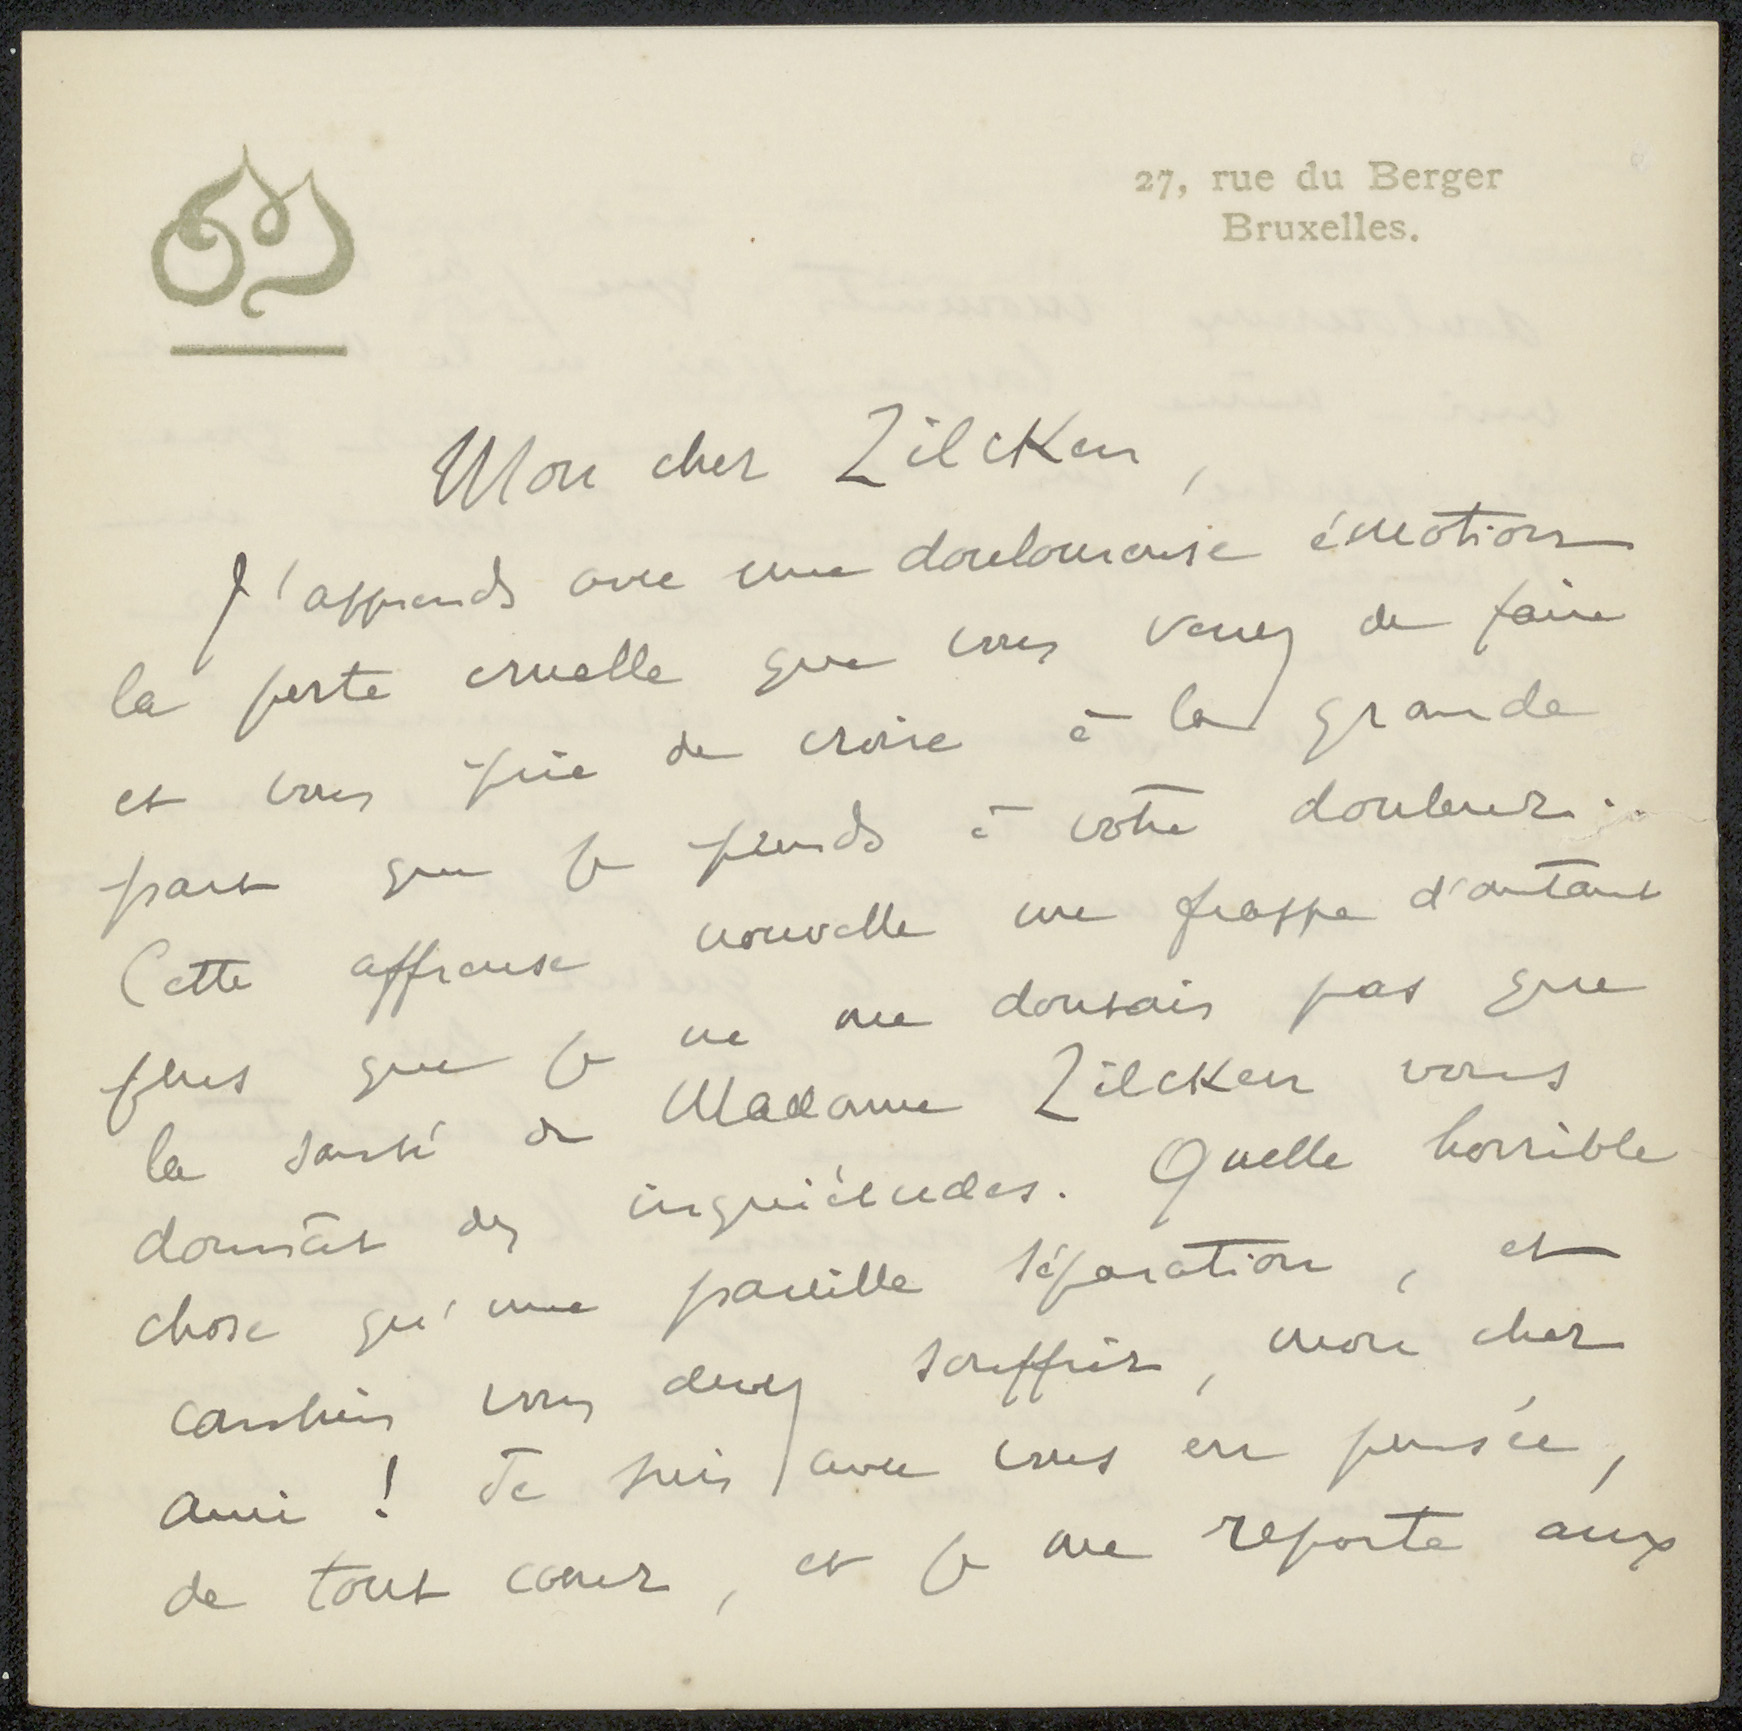 27, rue du Berger
Bruxelles.
Mon cher Zilcken,
J'apprends avec une douloureuse émotion
la perte cruelle que vous venez de faire
et vous prie de croire à la grande
part que je prends à votre douleur.
Cette affreuse nouvelle me frappe d'autant
plus que je ne me doutais pas que
la santé de Madame Zilcken vous
donnât des inquiétudes. Quelle horrible
chose qu'une pareille séparation, et
combien vous devez souffrir, mon cher
ami ! Je suis avec vous en pensée,
de tout coeur, et je me reporte aux